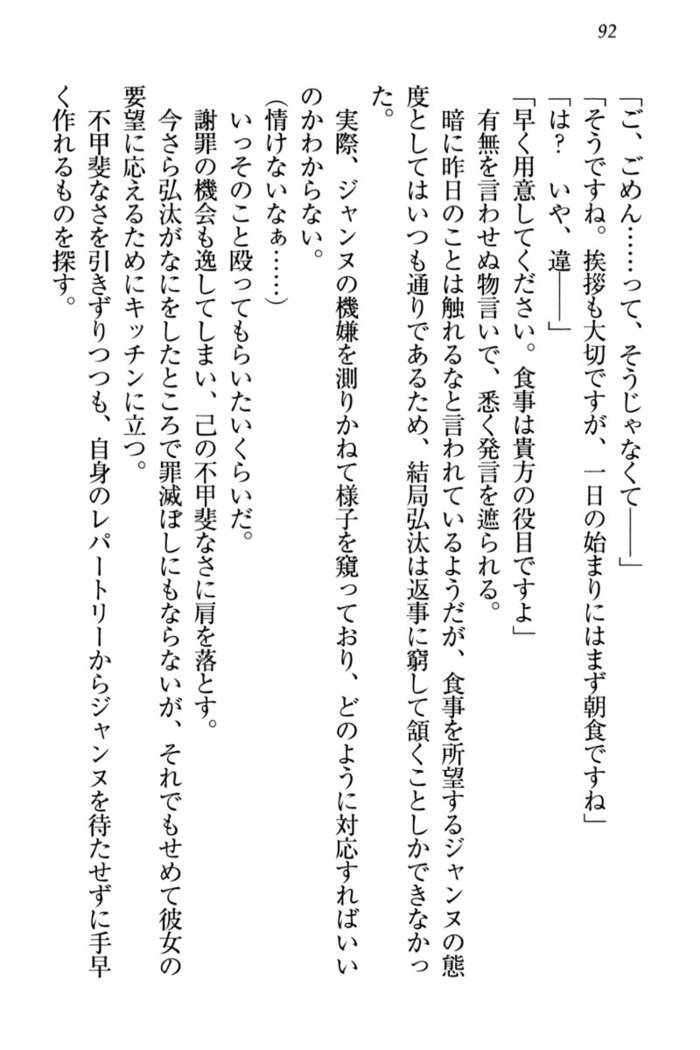 92
「ご、ごめん……って、そうじゃなくて――」
「そうですね。挨拶も大切ですが、一日の始まりにはまず朝食ですね」
「は？　いや、違――」
「早く用意してください。食事は貴方の役目ですよ」
有無を言わせぬ物言いで、悉く発言を遮られる。
暗に昨日のことは触れるなと言われているようだが、食事を所望するジャンヌの態
度としてはいつも通りであるため、結局弘汰は返事に窮して頷くことしかできなかっ
た。
実際、ジャンヌの機嫌を測りかねて様子を窺っており、どのように対応すればいい
のかわからない。
（情けないなぁ……）
いっそのこと殴ってもらいたいくらいだ。
謝罪の機会も逸してしまい、己の不甲斐なさに肩を落とす。
今さら弘汰がなにをしたところで罪滅ぼしにもならないが、それでもせめて彼女の
要望に応えるためにキッチンに立つ。
不甲斐なさを引きずりつつも、自身のレパートリーからジャンヌを待たせずに手早
く作れるものを探す。